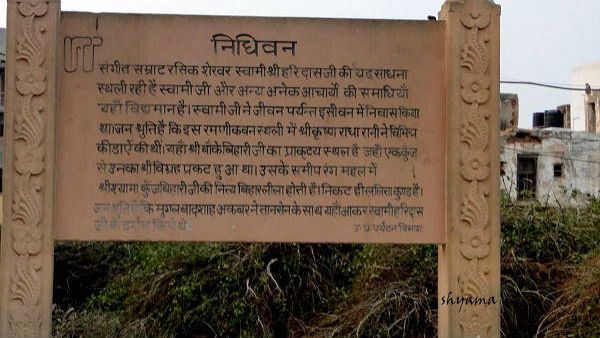 निधिवन
संगीत सम्राट रसिक शेखर स्वामी श्री हरिदासजी की यह साधना
स्थली रही है स्वामी जी और अन्य अनेक आचार्यो की समाधियाँ
यहाँ विद्यमान है। स्वामी जी ने जीवन पर्यन्त इसीवन में निवास किया
था। जन श्रुति है कि इस रमणीकवन स्थली में श्री कृष्ण राधा रानी ने विभिन्न
क्रीडाऐं की थीं। यहाँ श्री बाँके बिहारी जी का प्राकट्य स्थल है जहाँ एक कुंज
से उनका श्री विग्रह प्रकट हुआ था। उसके समीप रंग महल में
श्री श्यामा कुँजबिहारी जी की नित्य बिहार लीला होती है। निकट ही ललिता कुण्ड है।
जन श्रुति है कि मुगल बादशाह अकबर ने तानसेन के साथ यहाँ आकर स्वामी हरिदास
जी के दर्शन किये थे।
उ॰ प्र॰ पर्यटन विभाग
shyama